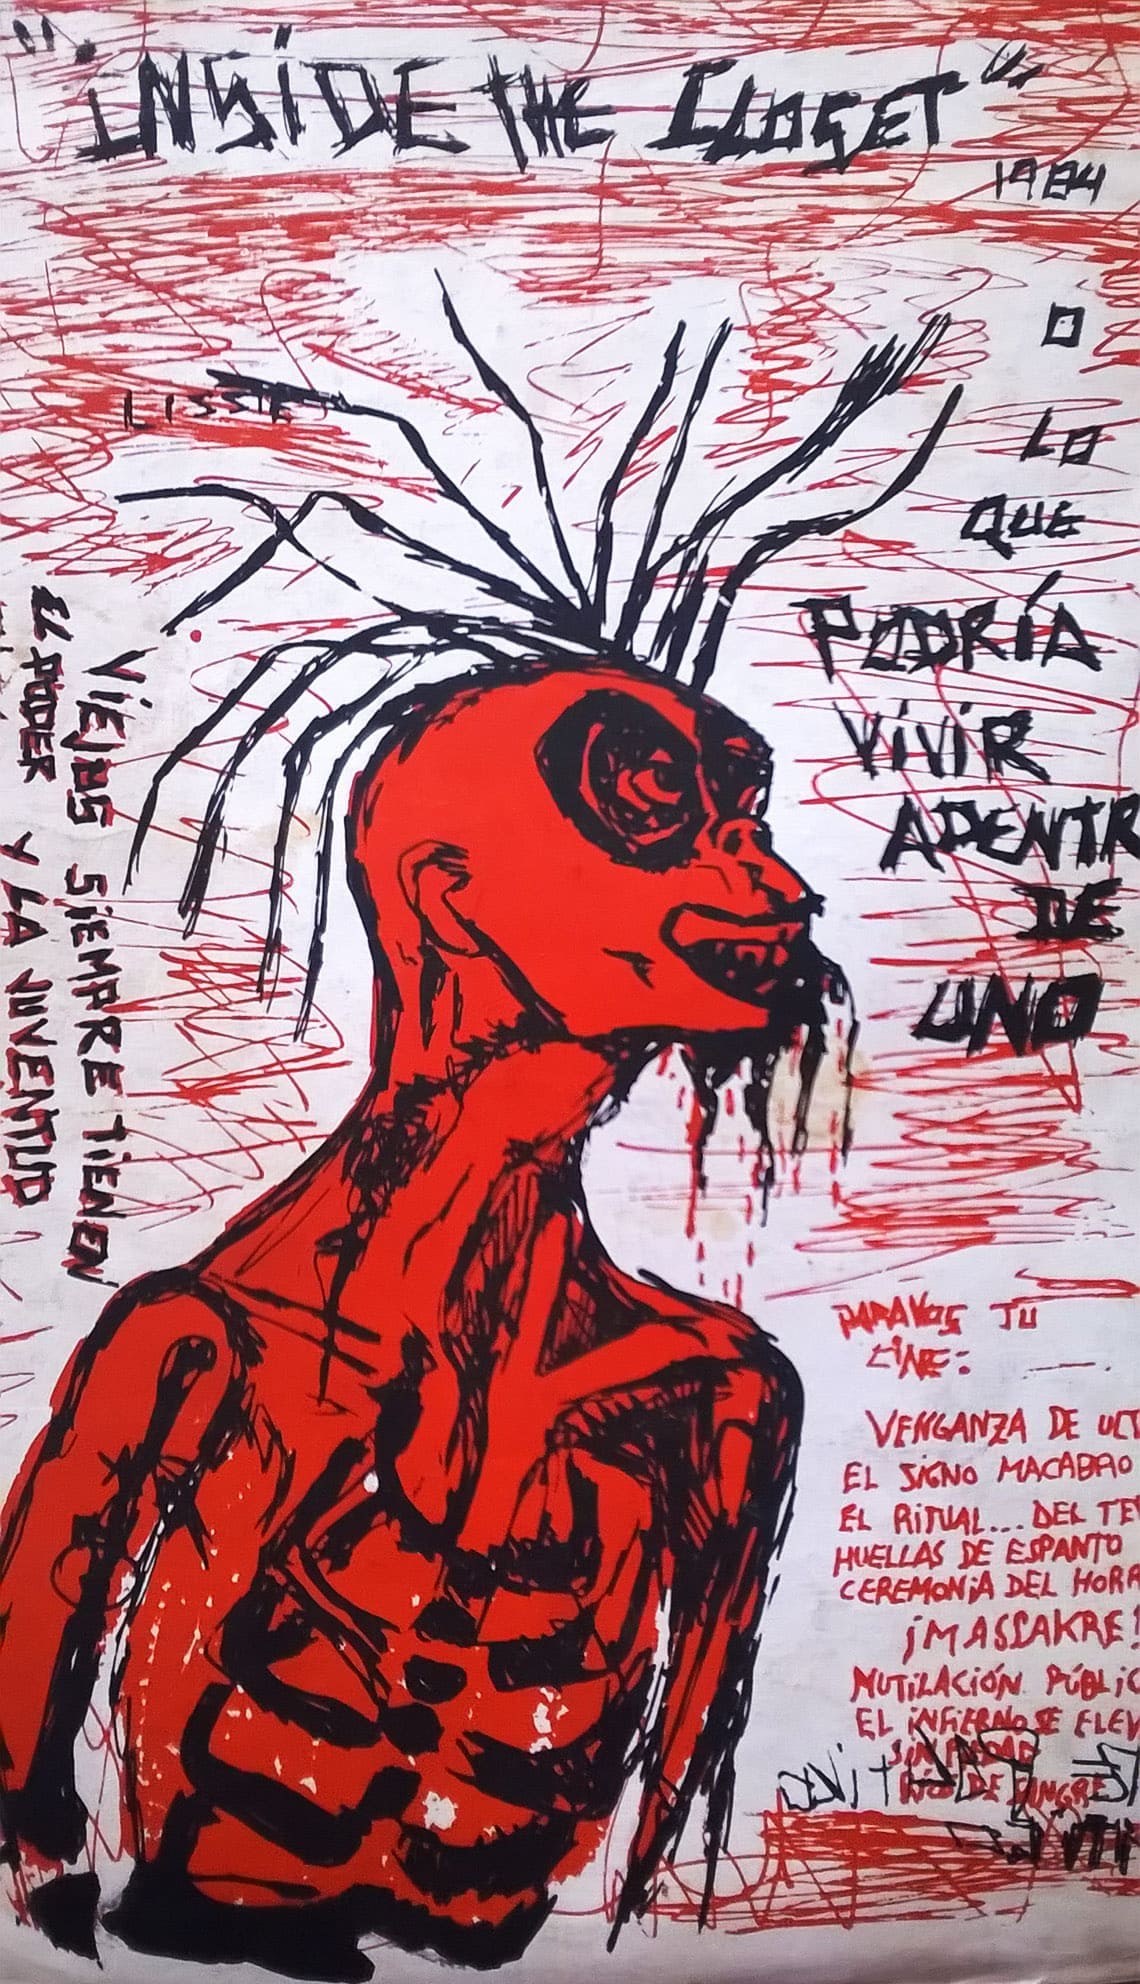 "INSIDE THE CLOSET"
1984
O
LO
QUE
PODRÍA
VIVIR
ADENTR
DE
UNO
LISSTE
VIEJOS SIEMPRE TIENEN
EL PODER Y LA JUVENTUD
PARA VOS TU
CINE:
VENGANZA DE ULT
EL SIGNO MACABRO
EL RITUAL... DEL TE
HUELLAS DE ESPANTO
CEREMONIA DEL HORR
¡MASSAKRE!
MUTILACIÓN PÚBLIC
EL INFIERNO SE ELEV
DE